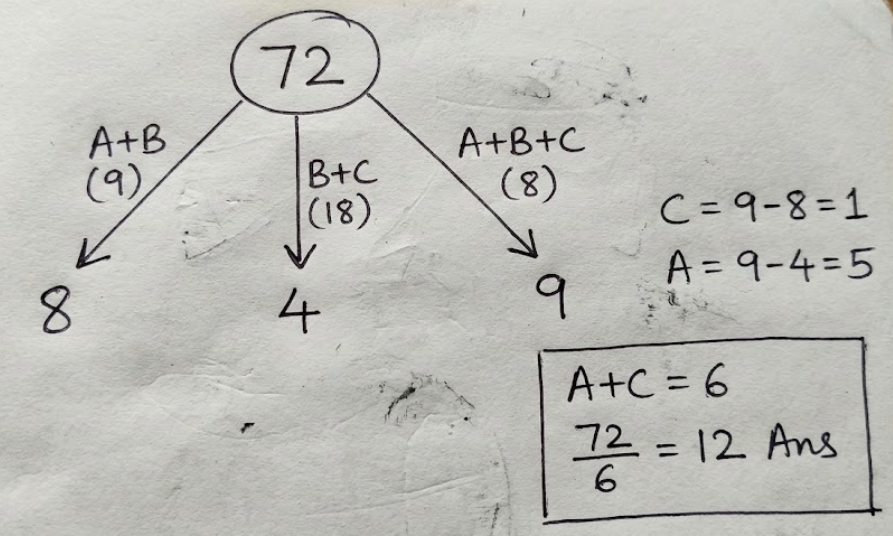 72
A+B
(9)
B+C
(18)
A+B+C
(8)
8
4
9
C = 9-8 = 1
A = 9-4 = 5
A+C = 6
72/6 = 12 Ans